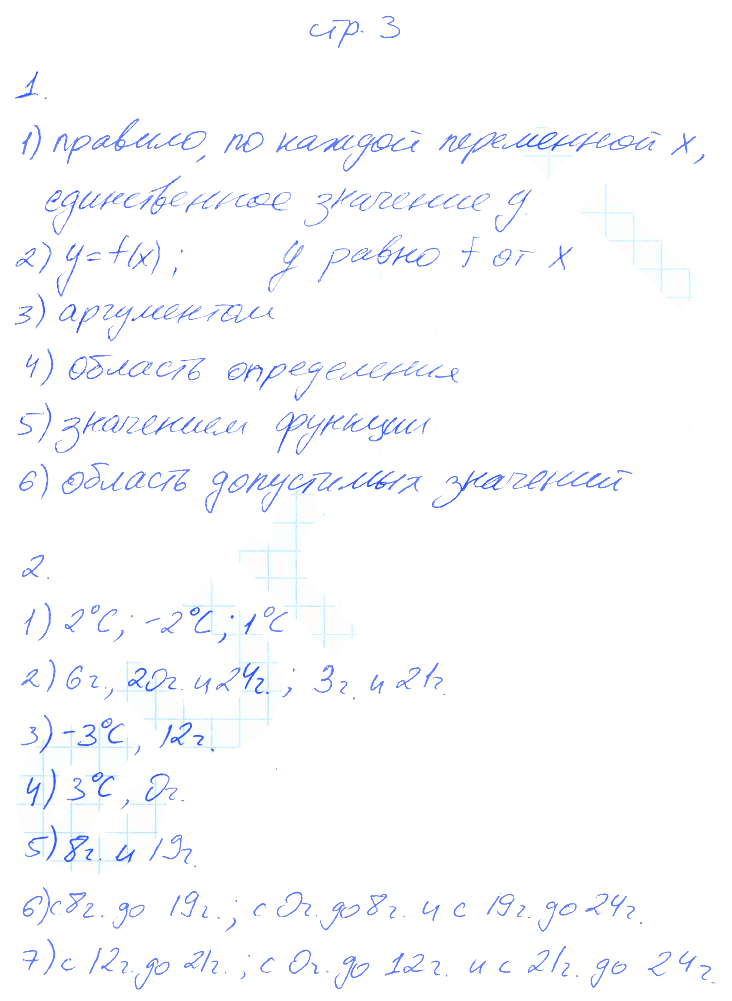 стр. 3
1.
1) правило, по каждой переменной x,
единственное значение y.
2) y=f(x); y равно f от x
3) аргументом
4) область определения
5) значением функции
6) область допустимых значений
2.
1) 2°C; -2°C; 1°C
2) 6г., 20г. и 24г.; 3г. и 21г.
3) -3°C, 12г.
4) 3°C, 0г.
5) 8г. и 19г.
6) с 8г. до 19г.; с 0г. до 8г. и с 19г. до 24г.
7) с 12г. до 21г.; с 0г. до 12г. и с 21г. до 24г.